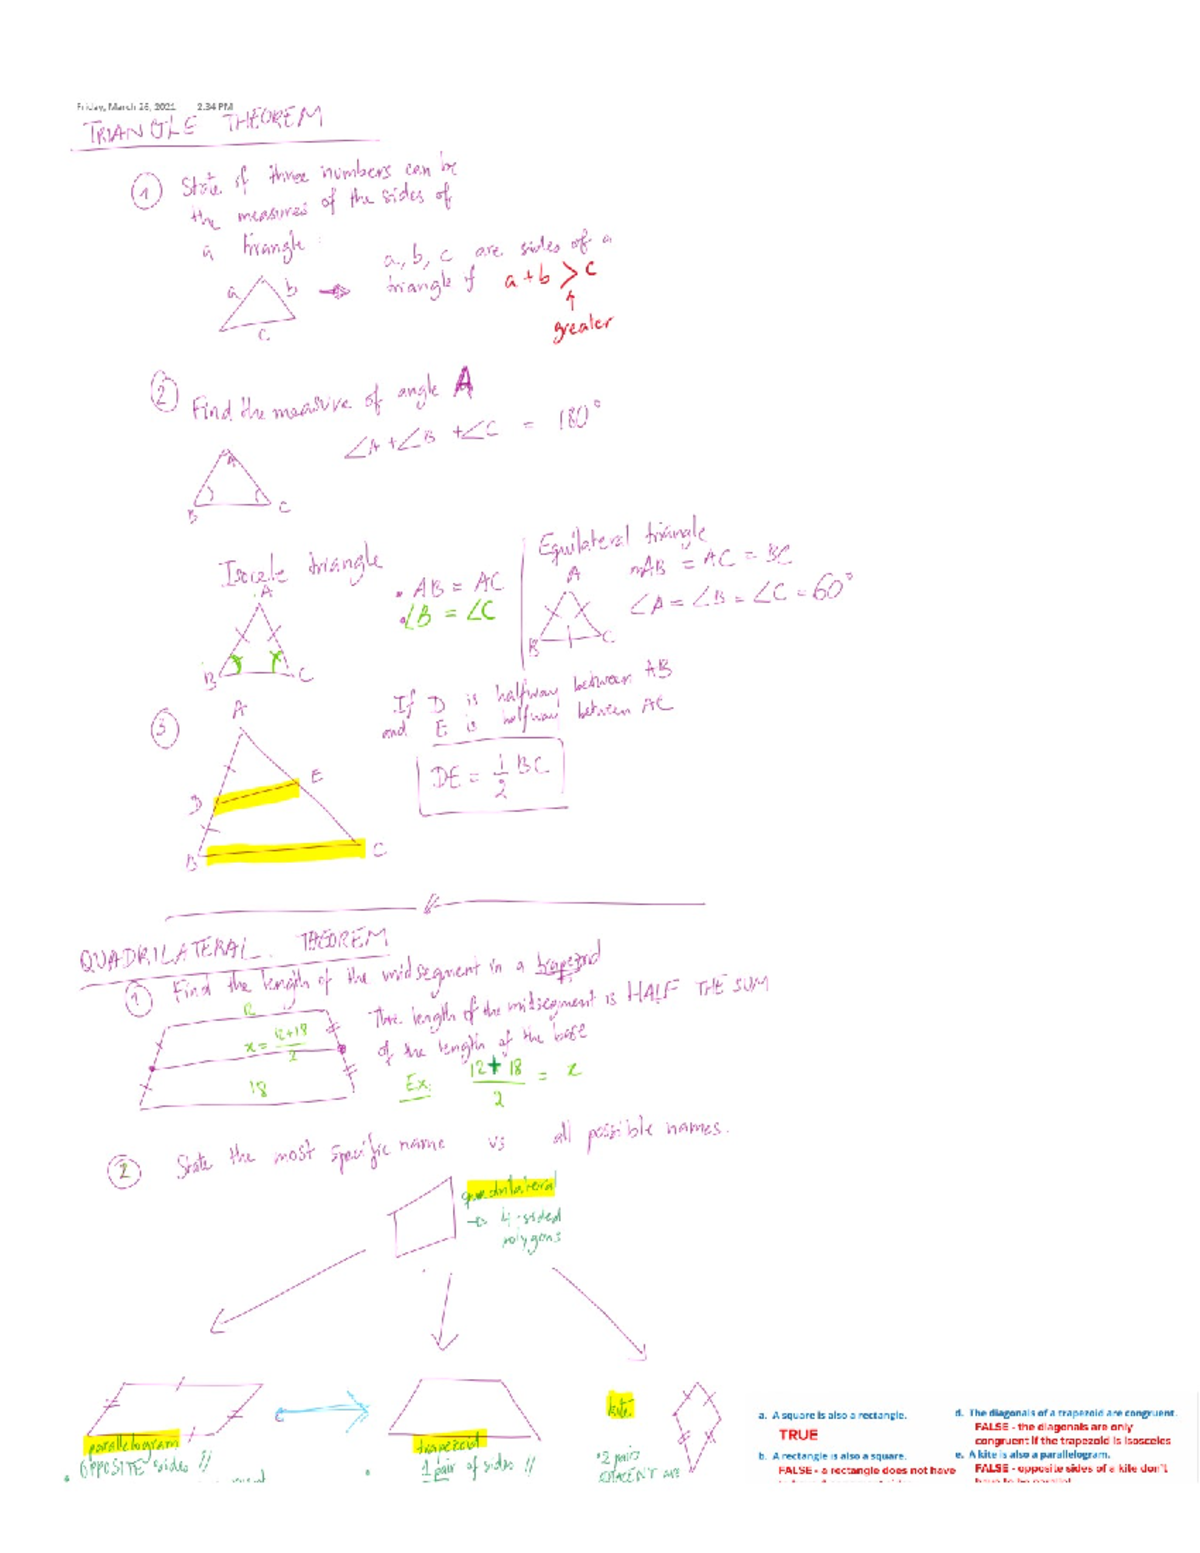 Friday, March 26, 2021 2:34 PM
TRIANGLE THEOREM
① State if three numbers can be
the measures of the sides of
a triangle
a, b, c are sides of a
triangle if a + b > c
greater
a b
c
② Find the measure of angle A
∠A + ∠B + ∠C = 180°
A
B C
Isocele triangle
• AB = AC
• ∠B = ∠C
A
B C
Equilateral triangle
AB = AC = BC
∠A = ∠B = ∠C = 60°
A
B C
③ If D is halfway between AB
and E is halfway between AC
DE = 1/2 BC
A
D E
B C
QUADRILATERAL THEOREM
① Find the length of the midsegment in a trapezoid
The length of the midsegment is HALF THE SUM
of the length of the base
12
x = 12+18
2
18
Ex: 12 + 18 = x
2
② State the most specific name vs all possible names.
quadrilateral
→ 4-sided
polygons
parallelogram
• OPPOSITE sides //
trapezoid
• 1 pair of sides //
kite
• 2 pairs
ADJACENT ARE
a. A square is also a rectangle.
TRUE
b. A rectangle is also a square.
FALSE - a rectangle does not have
d. The diagonals of a trapezoid are congruent.
FALSE - the diagonals are only
congruent if the trapezoid is isosceles
e. A kite is also a parallelogram.
FALSE - opposite sides of a kite don't
have to be parallel